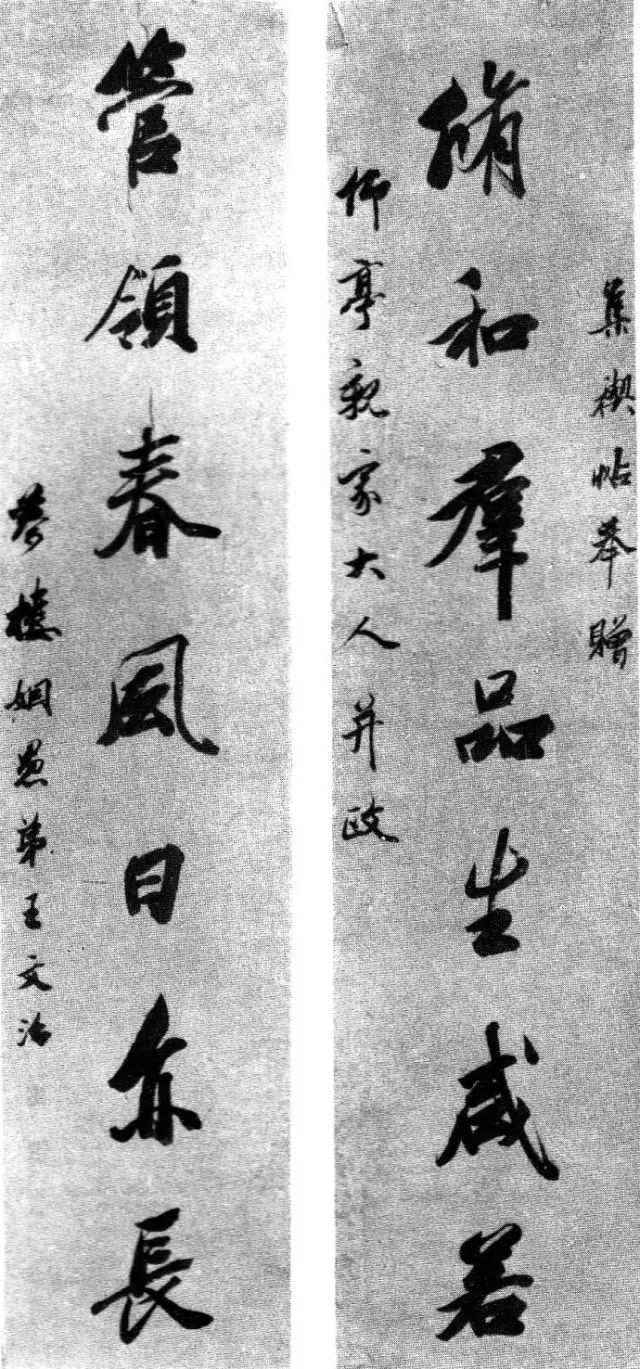 集禊帖奉贈
脩和羣品生咸若
仰亭親家大人并政
管領春風日亦長
夢樓姻愚弟王文治